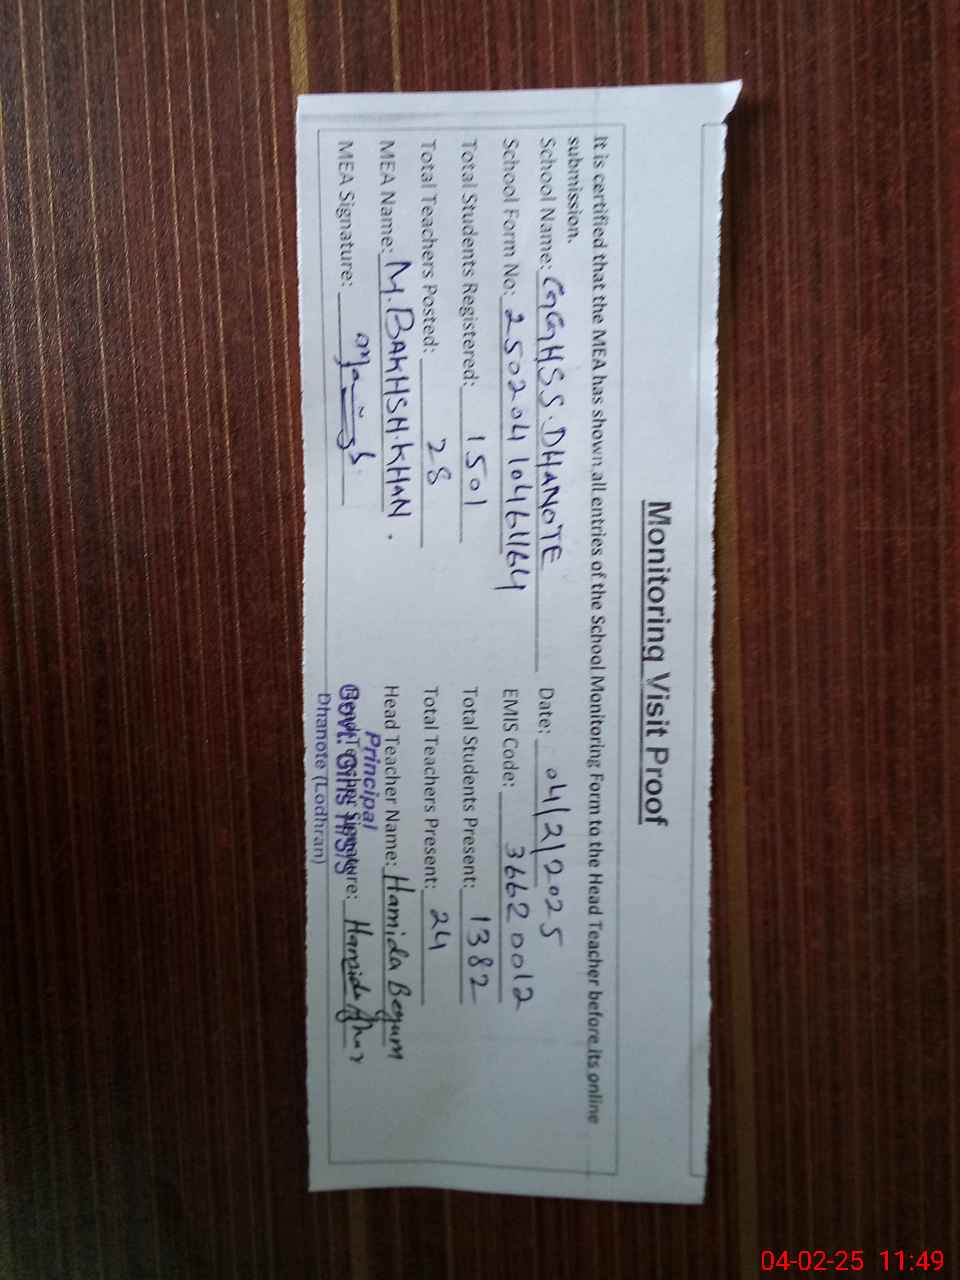 Monitoring Visit Proof
It is certified that the MEA has shown all entries of the School Monitoring Form to the Head Teacher before its online
submission.
School Name: GGHSS. DHANOTE Date: 04/2/2025
School Form No: EMIS Code: 36620012
Total Students Registered: 1501 Total Students Present: 1382
Total Teachers Posted: 28 Total Teachers Present: 24
MEA Name: M. BAKHSH. KHAN. Head Teacher Name: Hamida Begum
MEA Signature: Head Teacher Signature: Hamida
Principal
Govt. Girls H/S/S
Dhanote (Lodhran)
04-02-25 11:49